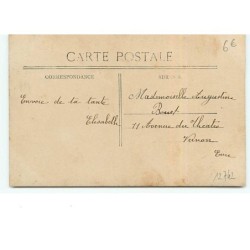 6€
CARTE POSTALE
CORRESPONDANCE
Envoie de ta tante
Elisabeth
Mademoiselle Augustine
11 Avenue du Théâtre
Vernon
Eure